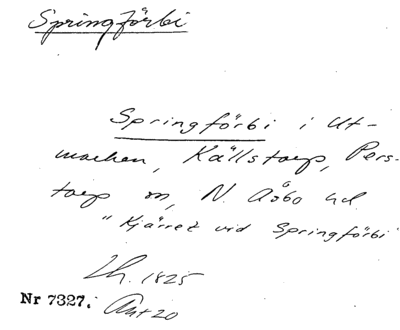 Springförbi
Springförbi i Ut-
marken, Källstorp, Pers-
torp sn, N. Åsbo hd
"Kjärret vid Springförbi"
Lh. 1825
Nr 7327. Akt 20